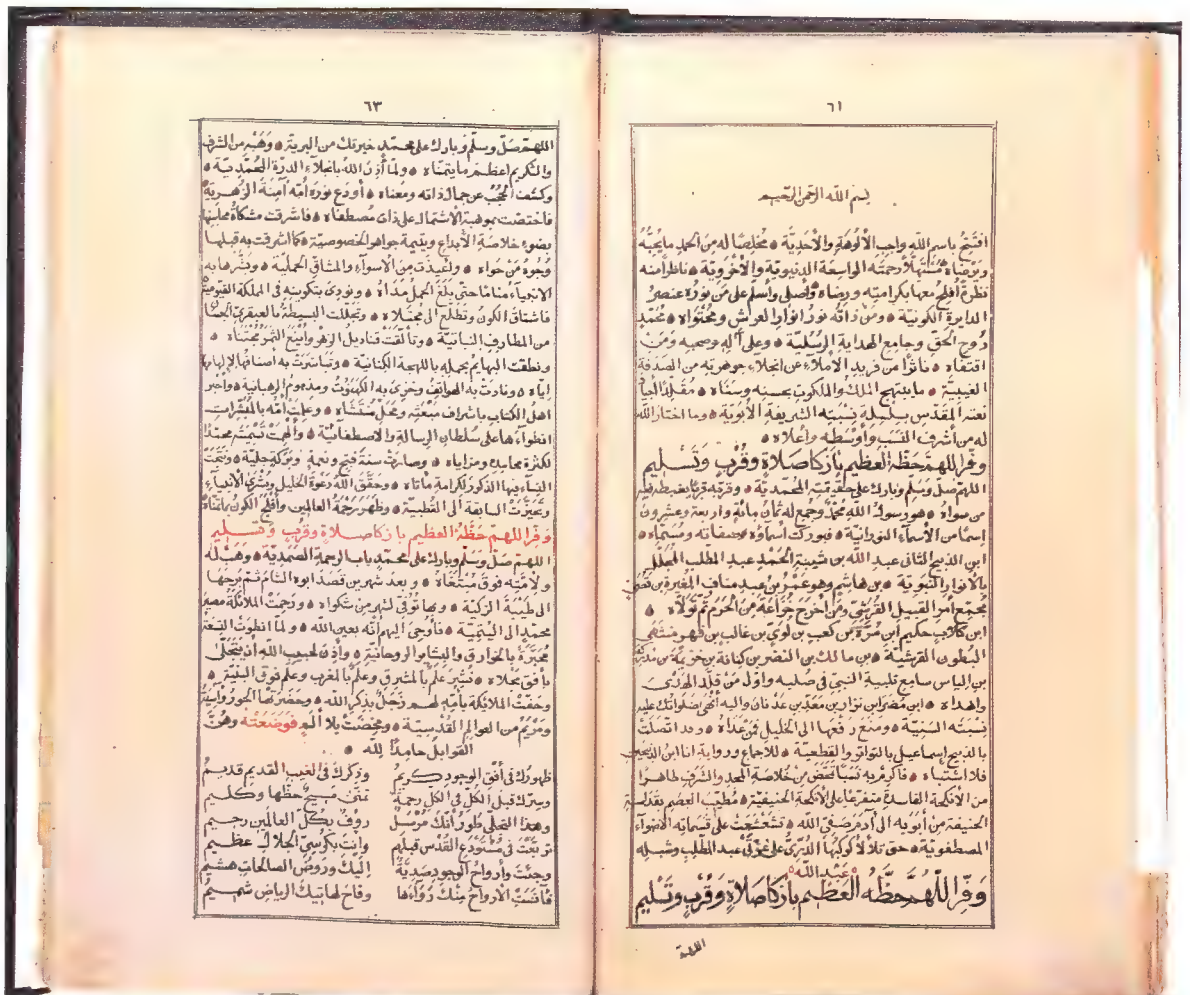 ٦١
بسم الله الرحمن الرحيم
افتتح باسم الله واجب الألوهة والأحدية ه مخلصا له من الحمد ما يحبه
ويرضاه مستهلا رحمته الواسعة الدنيوية والأخروية ه ناظرا منه
نظرة أفلح معها بكرامته ورضاه وأصلى وأسلم على من نوره عنصر
الدايرة الكونية ه ومن ذاته نور انوار العرش ومحتواه ه محمد
روح الحق وجامع الهداية الرسلية ه وعلى آله وصحبه ومن
اقتفاه ه ناثرا من فريد الأملاء عن انجلاء جوهريته من الصدفة
الغيبية ه ما يبتهج الملك والملكوت بحسنه وسناه ه مقلدا لجياد
نعته المقدس بسلسلة نسبته الشريفة الأبوية ه وما اختار الله
له من أشرف النسب وأوسطه وأعلاه ه
وفر اللهم حظه العظيم بازكا صلاة وقرب وتسليم
اللهم صل وسلم وبارك على حقيقته المحمدية ه وقربه قربا يغبطه فيه
من سواه ه هو رسول الله محمد وجمع له ثمان مائة واربعة وعشرون
اسما من الأسماء النورانية ه فبوركت أسماؤه وصفاته ومسماه ه
ابن الذبيح الثانى عبد الله بن شيبة الحمد عبد المطلب المجلل
بالأنوار النبوية ه بن هاشم وهو عمرو بن عبد مناف المغيرة بن قصى
مجمع أمر القبيل القرشى ومن أخرج خزاعة من الحرم ثم تولاه ه
ابن كلاب حكيم ابن مرة بن كعب بن لوى بن غالب بن فهر منتهى
البطون القرشية ه بن مالك بن النضر بن كنانة بن خزيمة بن مدركة
بن الياس سامع تلبية النبى فى صلبه واول من قلد الهدى
واهداه ه ابن مضر ابن نزار بن معد بن عدنان واليه أنهى صلواتك عليه
نسبته السنية ه ومنع رفعها الى الخليل فمن عداه ه وقد اتصلت
بالذبيح إسماعيل بالتواتر والقطعية ه للاجماع ورواية انا ابن الذبيحين
فلا اشتباه ه فاكرم به نسبا تمحض من خلاصة المجد والشرف طاهرا
من الأنكحة الفاسدة متفرعا على الأنكحة الحنيفية ه مطيب العصم بقداسة
الحنيفة من أبويه الى آدم صفى الله ه تشعشعت على قسماته الأضواء
المصطفوية ه حتى تلألأ كوكبها الدرى على غرتى عبد المطلب وشبله
ه عبد الله ه
وفر اللهم حظه العظيم بازكا صلاة وقرب وتسليم
اللهمة
٦٣
اللهم صل وسلم وبارك على محمد خيرتك من البرية ه وهبه من الشرف
والتكريم اعظم ما يتمناه ه ولما أذن الله بانجلاء الدرة المحمدية ه
وكشف الحجب عن جمال ذاته ومعناه ه أودع نوره أمه آمنة الزهرية
فاختصت بموهبة الاشتمال على ذات مصطفاه ه فاشرقت مشكاة مجليها
بضوء خلاصة الأبداع ويتيمة جواهر الخصوصية ه كما أشرقت به قبلها
وجوه من حواه ه واعيذت من الاسواء والمشاق الحملية ه وبشرها به
الانبياء مناما حتى بلغ الحمل مداه ه ونودى بتكوينه فى المملكة القيومية
فاشتاق الكون وتطلع الى مجتلاه ه وتجللت البسيطة بالعبقرى الحسان
من المطارف النباتية ه وتألقت قناديل الزهر وأينع الثمر مجتناه ه
ونطقت البهائم بحمله باللهجة الكنانية ه وتباشرت به أصنافها لإلهامها
اياه ه ونادت به الهواتف وخزى به الكهنوت ومذموم الرهبانية ه واخبر
اهل الكتاب باشراف مبعثه ومحل منتشاه ه وعلمت امه بالمبشرات
انطواءها على سلطان الرسالة والاصطفائية ه وألهمت تسميته محمدا
لكثرة محامده ومزاياه ه وصارت سنة فتح ونعمة وبركة جلية ه وتتجت
النساء فيها الذكور لكرامة مأتاه ه وحقق الله دعوة الخليل وبشرى الأنبياء
وتحيزت السابقة الى القطبية ه وظهر رحمة العالمين وأفلح الكون بما تمناه
وفر اللهم حظه العظيم بازكا صلاة وقرب وتسليم
اللهم صل وسلم وبارك على محمد باب الرحمة الصمدية ه وهب له
ولامته فوق مبتغاه ه وبعد شهرين قصد ابوه الشام ثم يرجها
الى طيبة الزكية ه وبها توفى لشهر من شكواه ه ورحمت الملائكة مصير
محمد الى اليتمية ه فأوحى اليهم أنه بعين الله ه ولما انطوت التسعة
مخبرة بالخوارق والبشاير الروحانية ه وأذن لحبيب الله أن يتجلى
بأفق مجلاه ه نشر علم بالمشرق وعلم بالمغرب وعلم فوق البنية ه
وحفت الملائكة بأمه لهم زجل بذكر الله ه وحضرتها الحور وآسية
ومريم من العوالم القدسية ه ومخضت بلا ألم فوضعته وهنت
القوابل حامدا لله ه
ظهورك فى أفق الوجود كريم وذكرك فى الغيب القديم قديم
وسرك قبل الكل فى الكل رحمة تمنى مسيح حظها وكليم
وهذا التجلى طور أنك مرسل رؤف بكل العالمين رحيم
تربعت فى مستودع القدس قبلهم وانت بكرسي الجلال عظيم
وجئت وأرواح الوجود صدية اليك وروض الصالحات هشيم
فآنست الارواح منك دواءها وفاح لهاتيك الرياض شميم